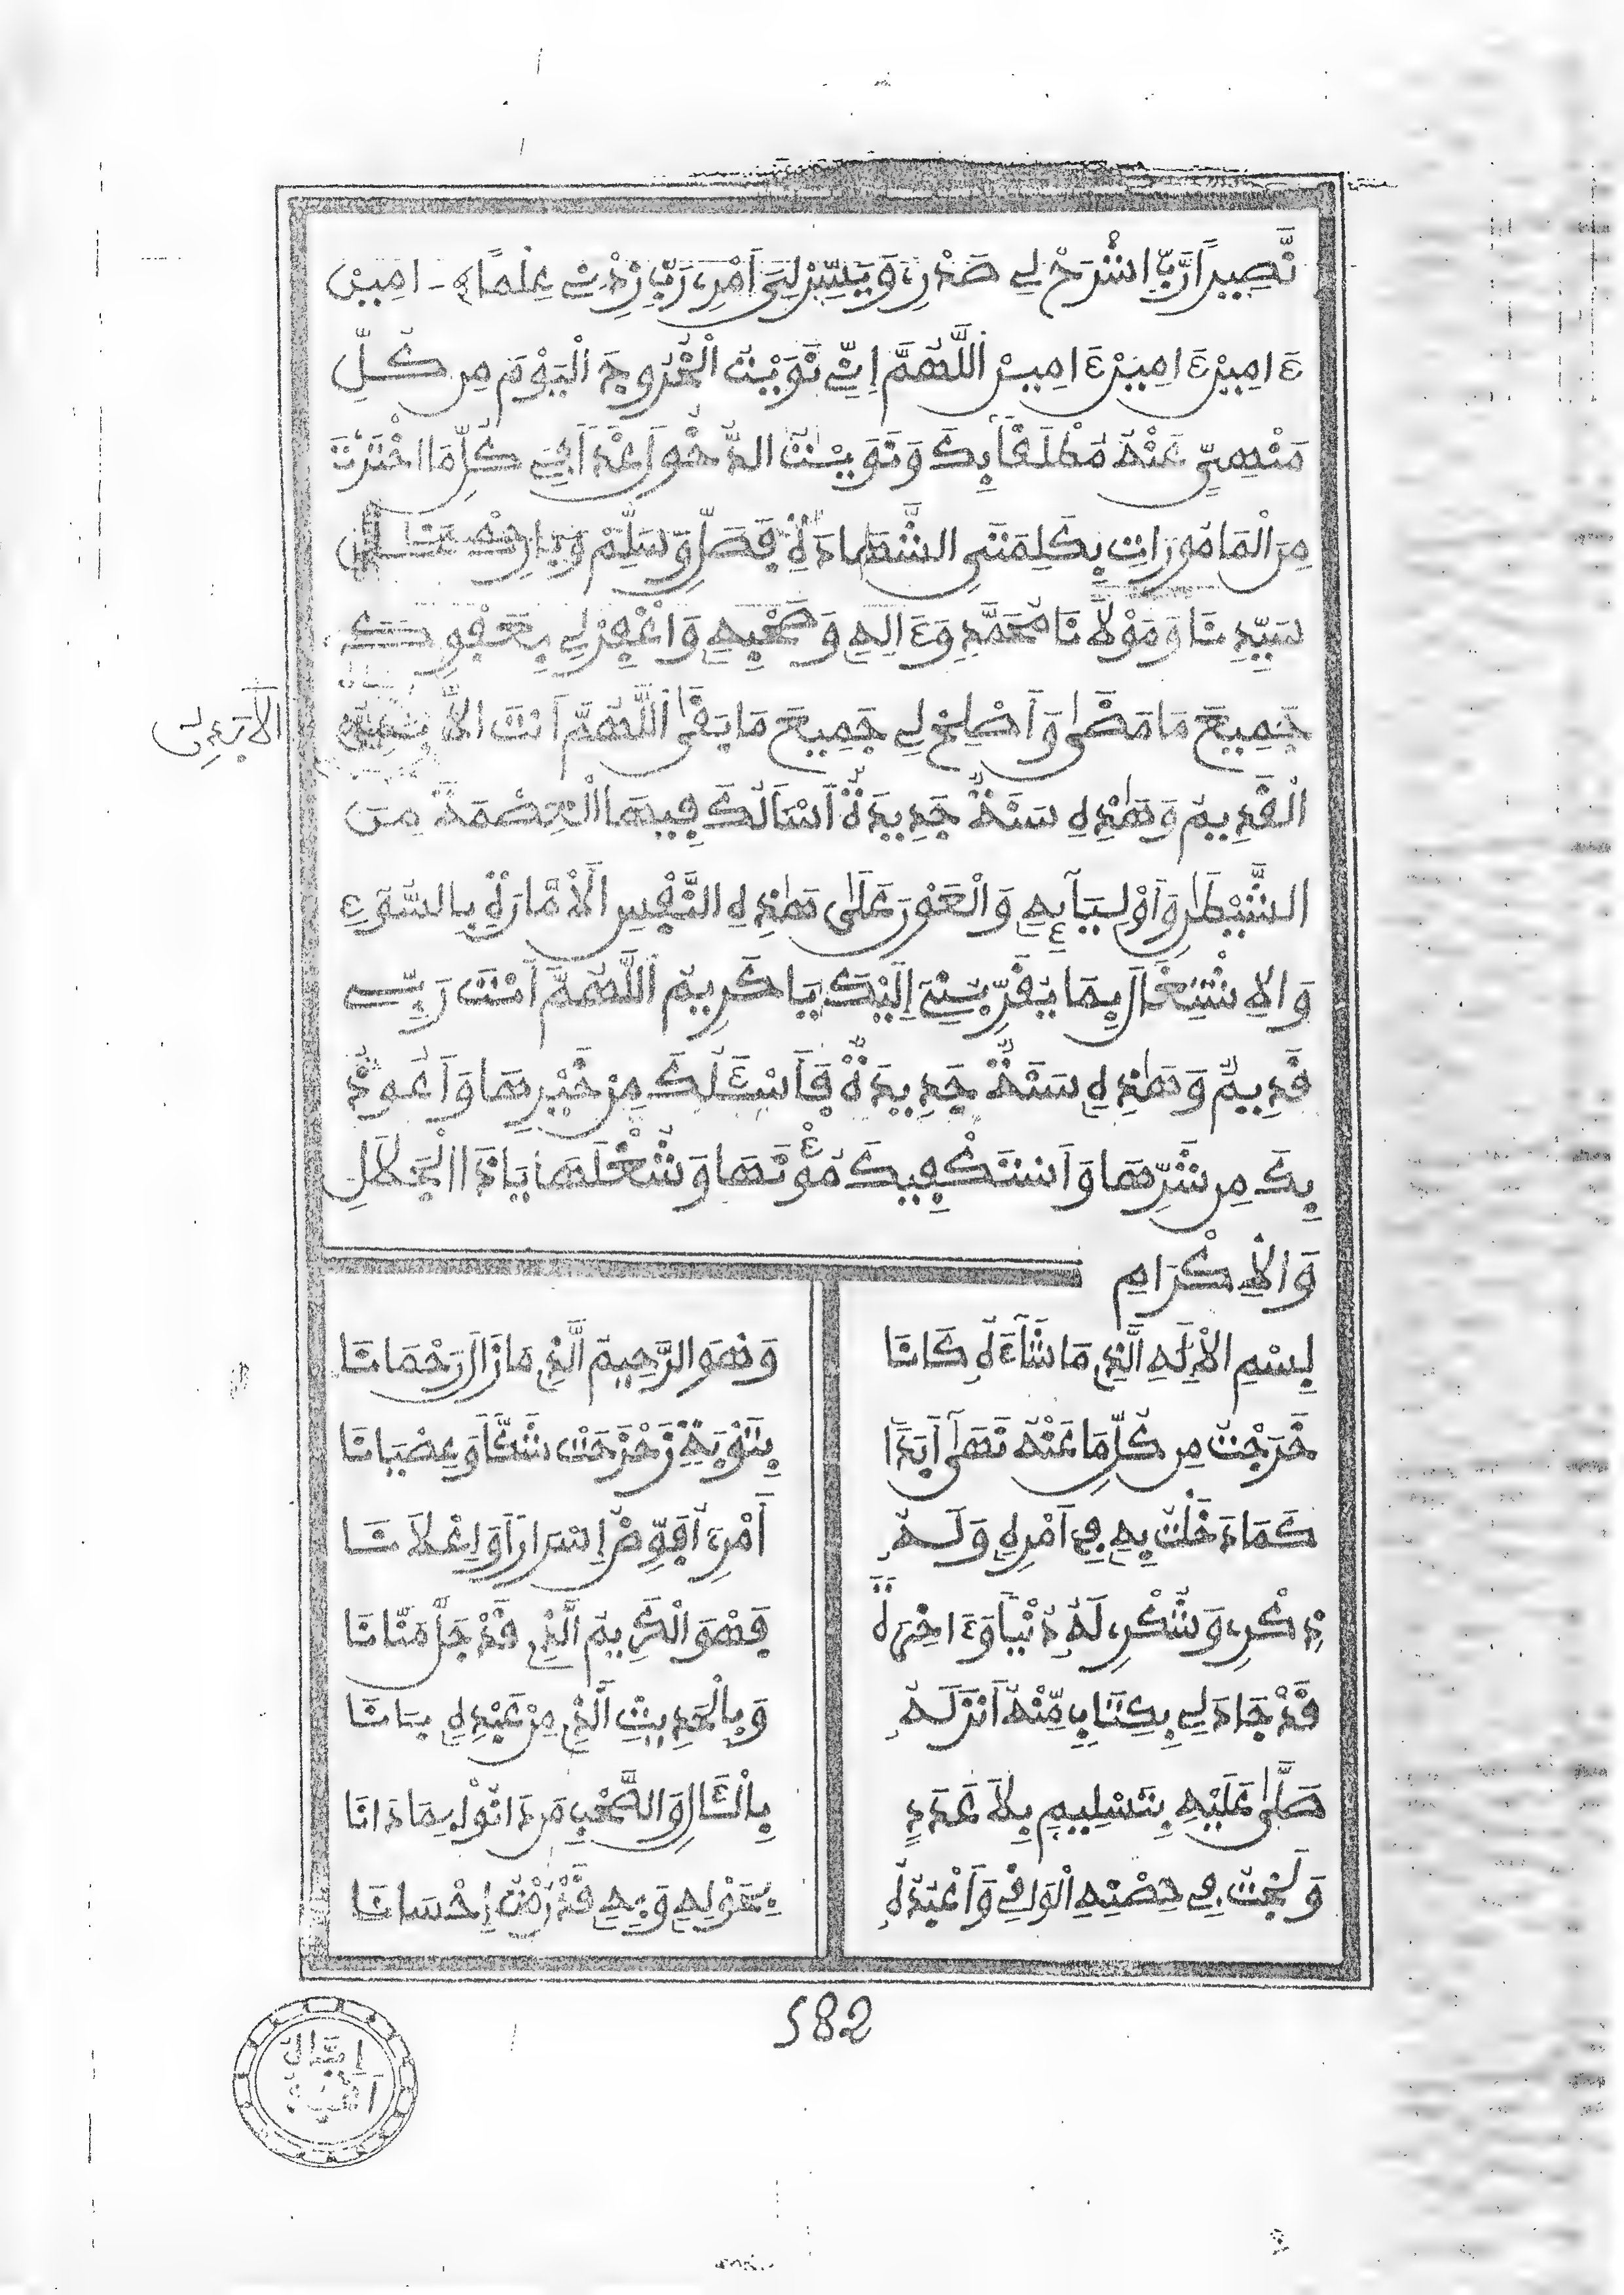 نَّصِيراً رَّبِّ اِشْرَحْ لِے صَدْرِے وَيَسِّرْ لِےَ أَمْرِے رَبِّ زِدْنِے عِلْماً ـ امِينْ
ءَامِينْ ءَامِينْ ءَامِينْ اَللَّهُمَّ إِنِّے نَوَيْتُ الْخُرُوجَ الْيَوْمَ مِن كُلِّ
مَنْهِيٍّ عَنْهُ مُطْلَقاً بِكَ وَنَوَيْتُ الدُّخُولَ غَداً فِے كُلِّ مَا اخْتَرْتَ
مِنَ الْمَامُورَاتِ بِكَلِمَتَىِ الشَّهَادَةِ فَصَلِّ وَسَلِّمْ وَبَارِكْ عَلَى
سَيِّدِنَا وَمَوْلاَنَا مُحَمَّدٍ وَءَالِهِ وَصَحْبِهِ وَاغْفِرْ لِے بِعَفْوِكَ
جَمِيعَ مَا مَضَىٰ وَأَصْلِحْ لِے جَمِيعَ مَا يَبْقَىٰ اَللَّهُمَّ أَنتَ
الاَبَدِىُّ
الْقَدِيمُ وَهَٰذِهِ سَنَةٌ جَدِيدَةٌ أَسْأَلُكَ فِيهَا الْعِصْمَةَ مِنَ
الشَّيْطَٰنِ وَأَوْلِيَآئِهِ وَالْعَوْنَ عَلَىٰ هَٰذِهِ النَّفْسِ الْأَمَّارَةِ بِالسُّوءِ
وَالِاشْتِغَالَ بِمَا يُقَرِّبُنِے إِلَيْكَ يَا كَرِيمُ اَللَّهُمَّ أَنتَ رَبِّے
قَدِيمٌ وَهَٰذِهِ سَنَةٌ جَدِيدَةٌ فَأَسْئَلُكَ مِنْ خَيْرِهَا وَأَعُوذُ
بِكَ مِن شَرِّهَا وَأَسْتَكْفِيكَ مُؤْنَهَا وَشُغْلَهَا يَا ذَا الْجَلاَلِ
وَالِاكْرَامِ
بِسْمِ الْإِلَٰهِ الَّذِے مَا شَاءَهُ كَانَا
وَهُوَ الرَّحِيمُ الَّذِے مَا زَالَ رَحْمَانَا
خَرَجْتُ مِن كُلِّ مَا عَنْهُ نَهَىٰ أَبَداً
بِتَوْبَةٍ زَحْزَحَتْ شَكّاً وَعِصْيَانَا
كَمَا دَخَلْتُ بِهِ فِے أَمْرِهِ وَلَهُ
أَمْرِے أُفَوِّضُ إِسْرَاراً وَإِعْلاَنَا
ذِكْرِے وَشُكْرِے لَهُ دُنْيَا وَءَاخِرَةً
فَهْوَ الْكَرِيمُ الَّذِے قَدْ جَلَّ مَنَّانَا
قَدْ جَادَ لِے بِكِتَابٍ مِّنْهُ أَنزَلَهُ
وَبِالْحَدِيثِ الَّذِے مِنْ عَبْدِهِ بَانَا
صَلَّىٰ عَلَيْهِ بِتَسْلِيمٍ بِلاَ عَدَدٍ
بِالْئَالِ وَالصَّحْبِ مَن دَانُوا بِمَا دَانَا
وَلَجْتُ فِے حِصْنِهِ الْوَافِے وَأَعْبُدُهُ
بِعَوْنِهِ وَبِهِ قَدْ رُمْتُ إِحْسَانَا
582